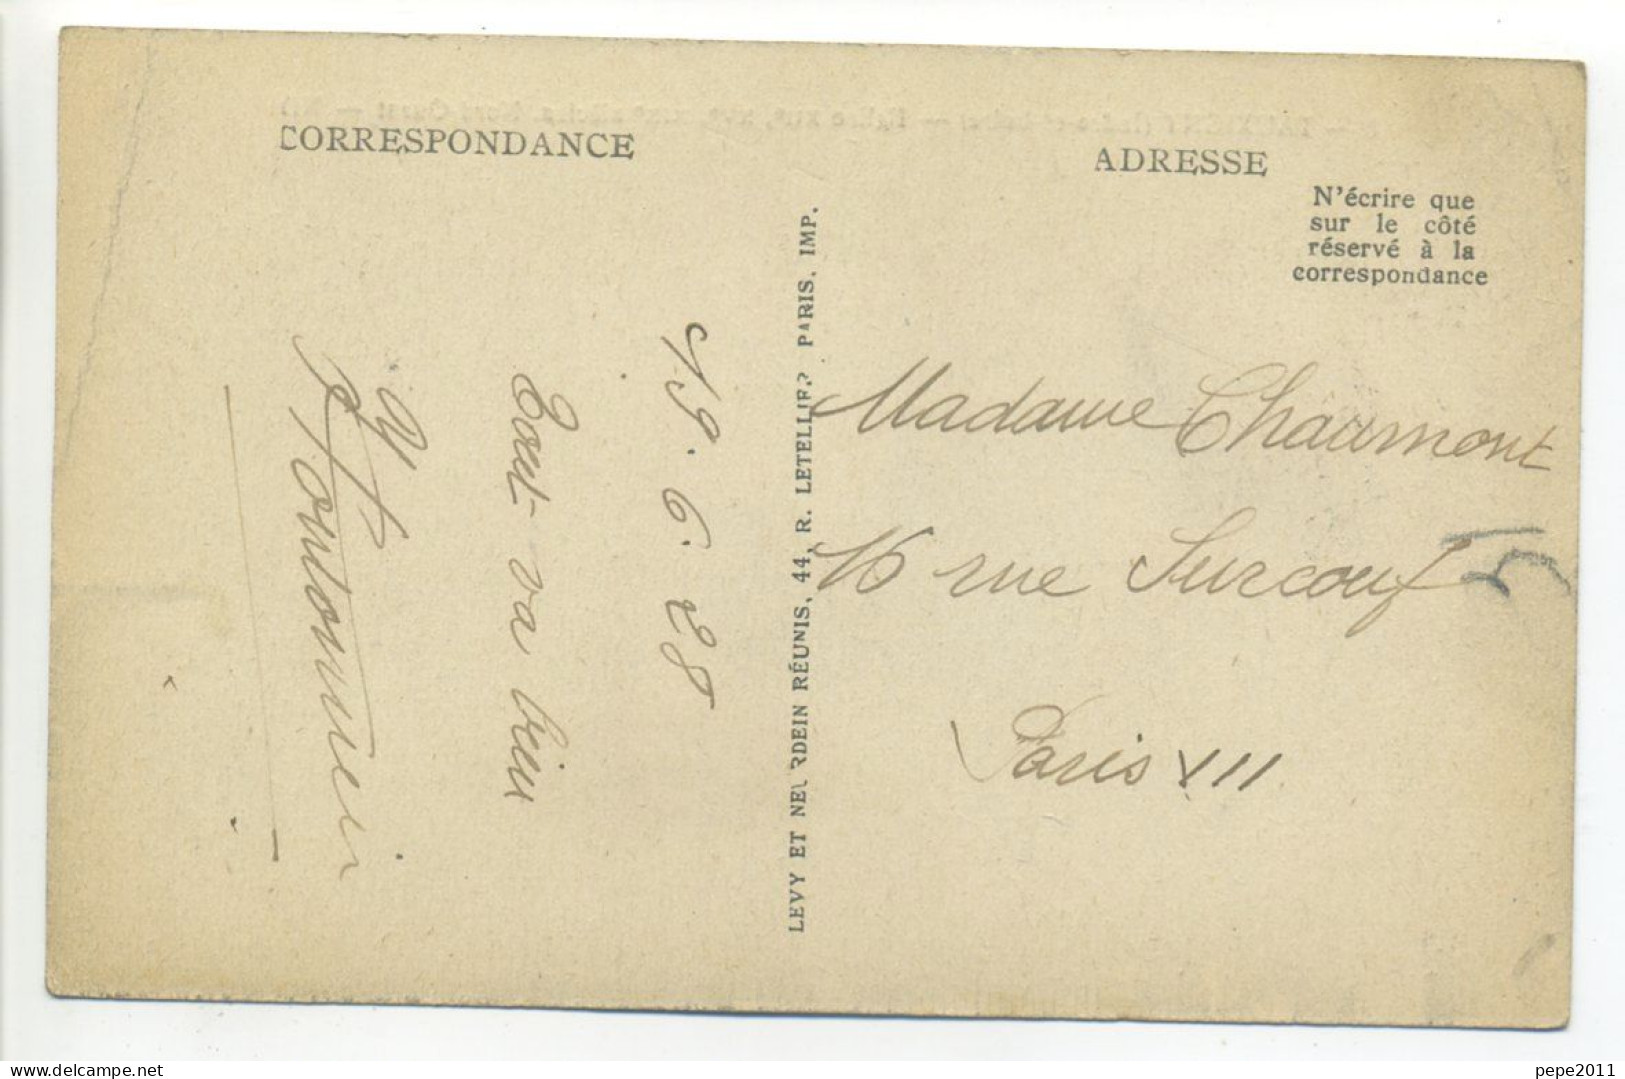 CORRESPONDANCE
ADRESSE
N'écrire que
sur le côté
réservé à la
correspondance
LEVY ET NEURDEIN RÉUNIS, 44, R. LETELLIER, PARIS. IMP.
19. 6. 28
Tout va bien
Madame Chaumont
16 rue Surcouf
Paris VII
www.delcampe.net
pepe2011